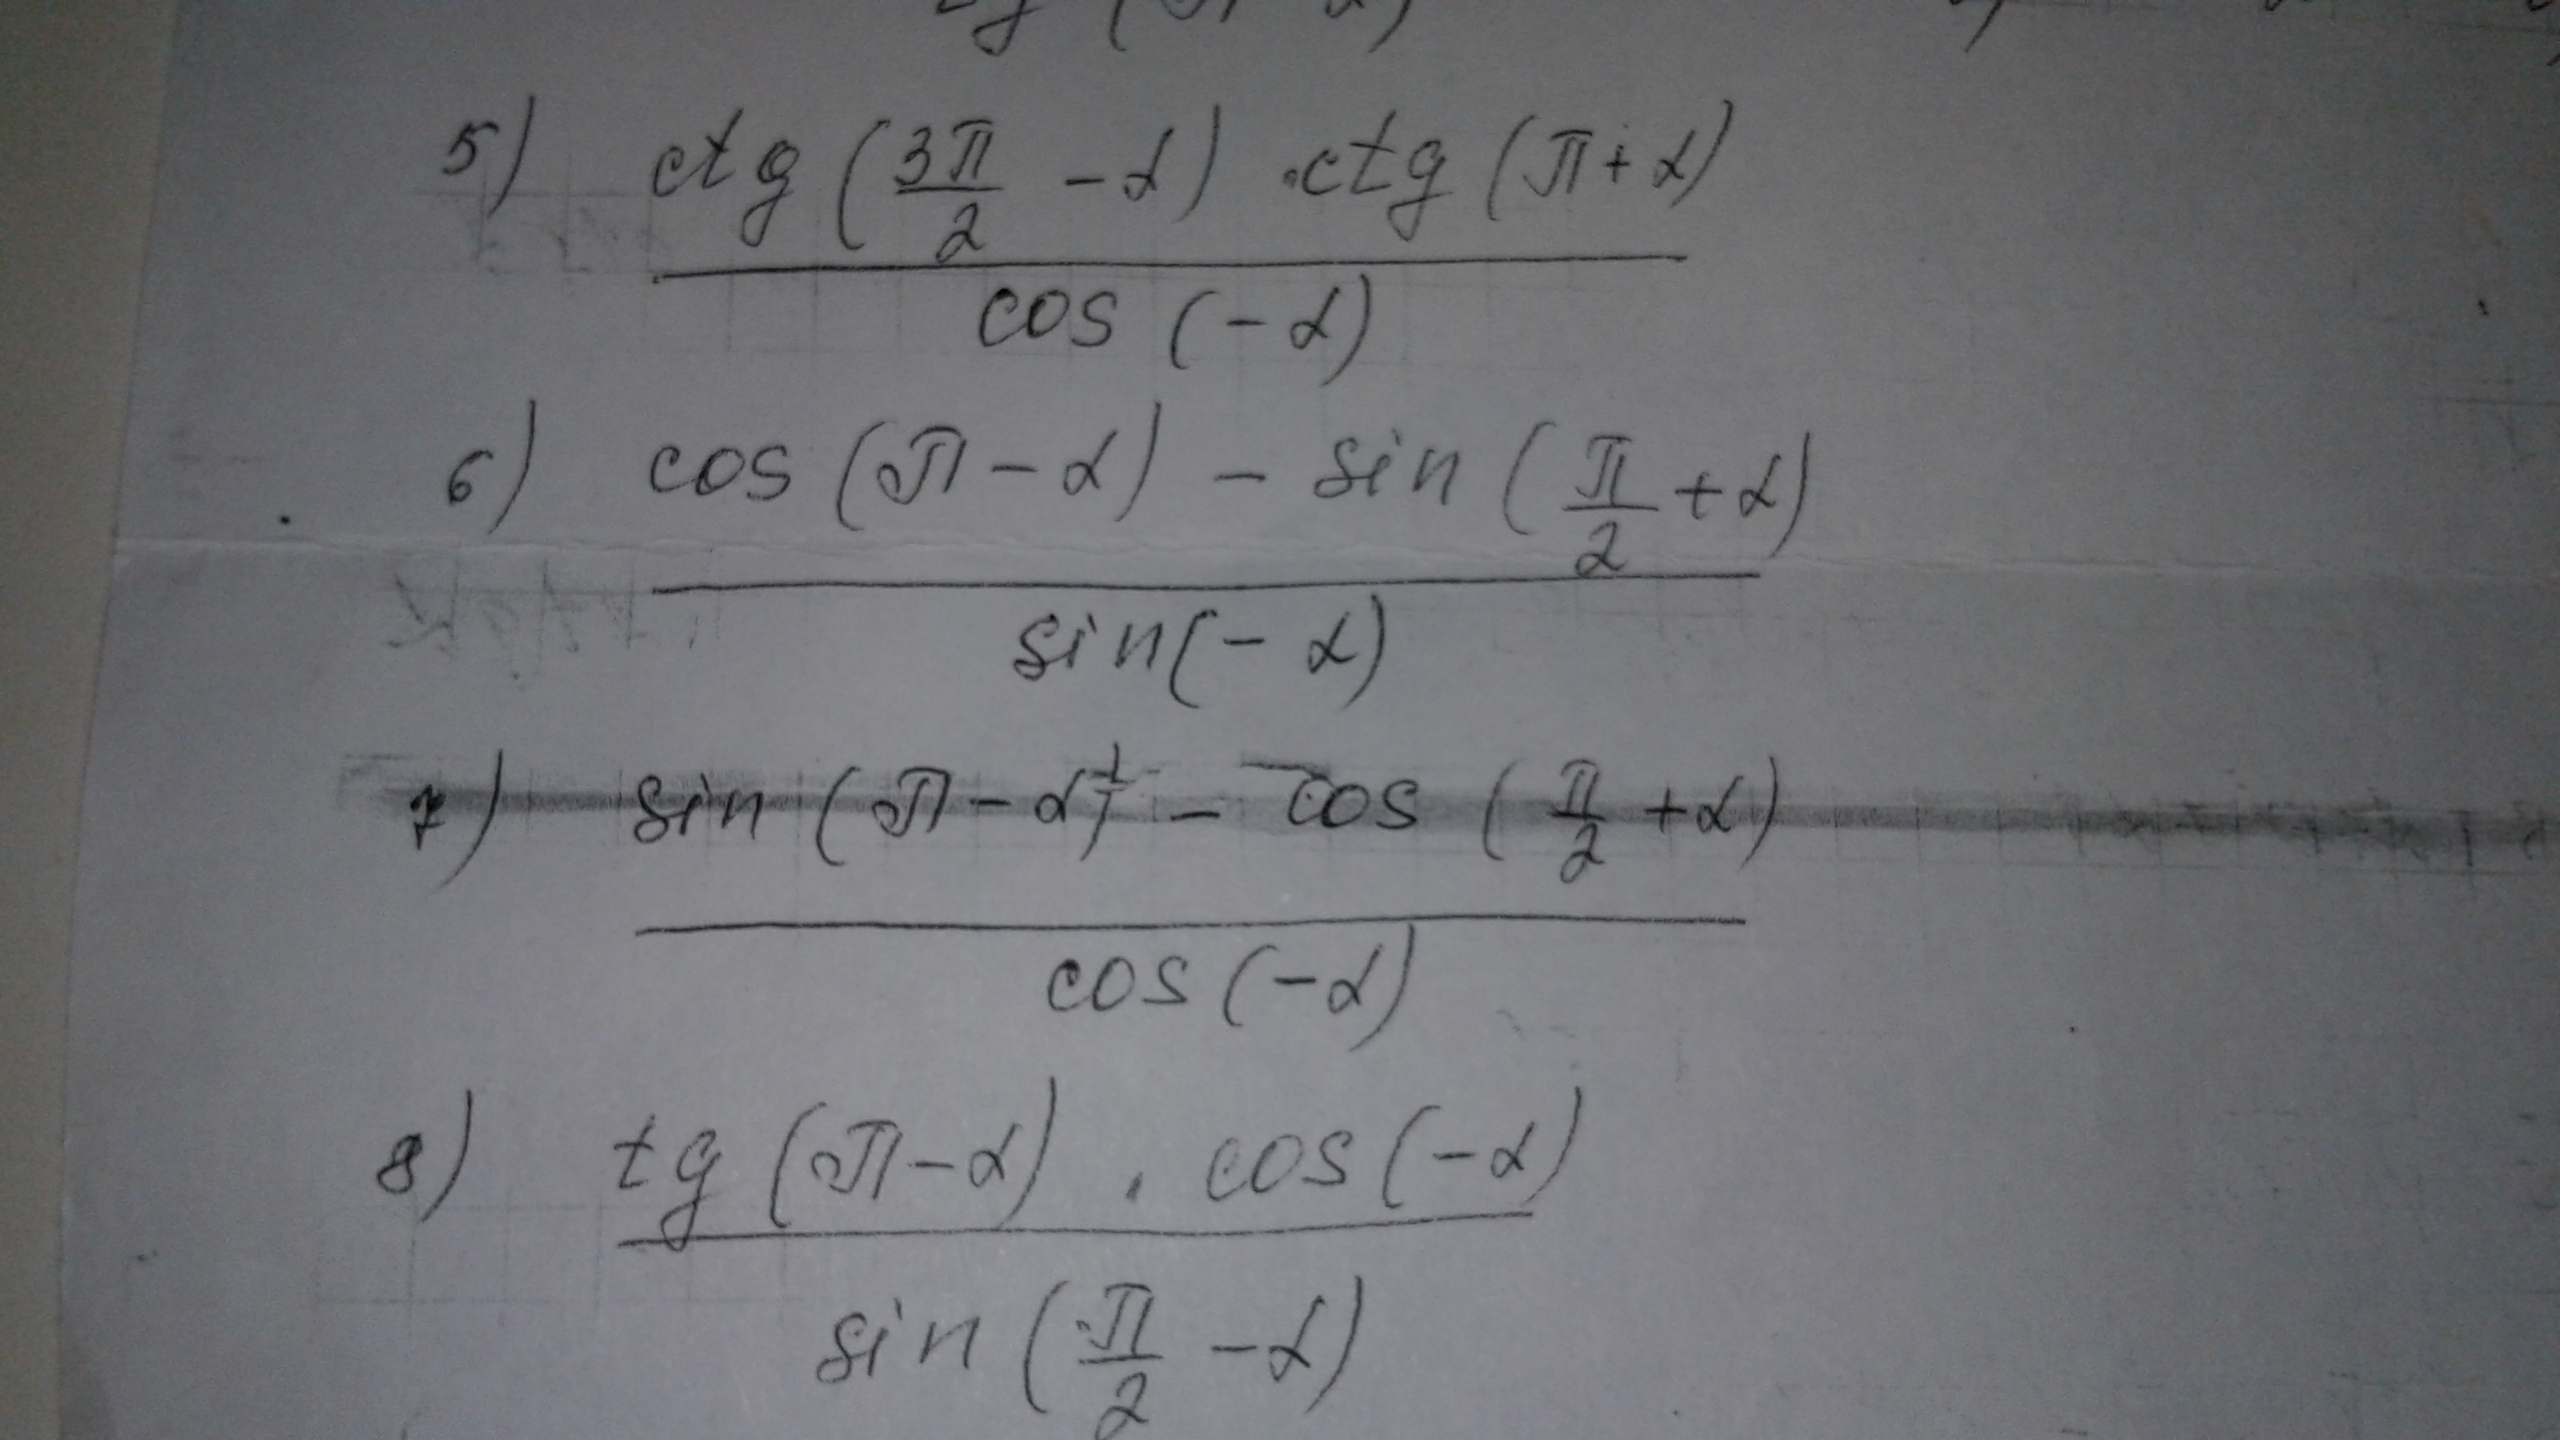 5) ctg (3π/2 - α) · ctg (π + α)
cos (-α)
6) cos (π - α) - sin (π/2 + α)
sin (-α)
7) sin (π - α) - cos (π/2 + α)
cos (-α)
8) tg (π - α) · cos (-α)
sin (π/2 - α)